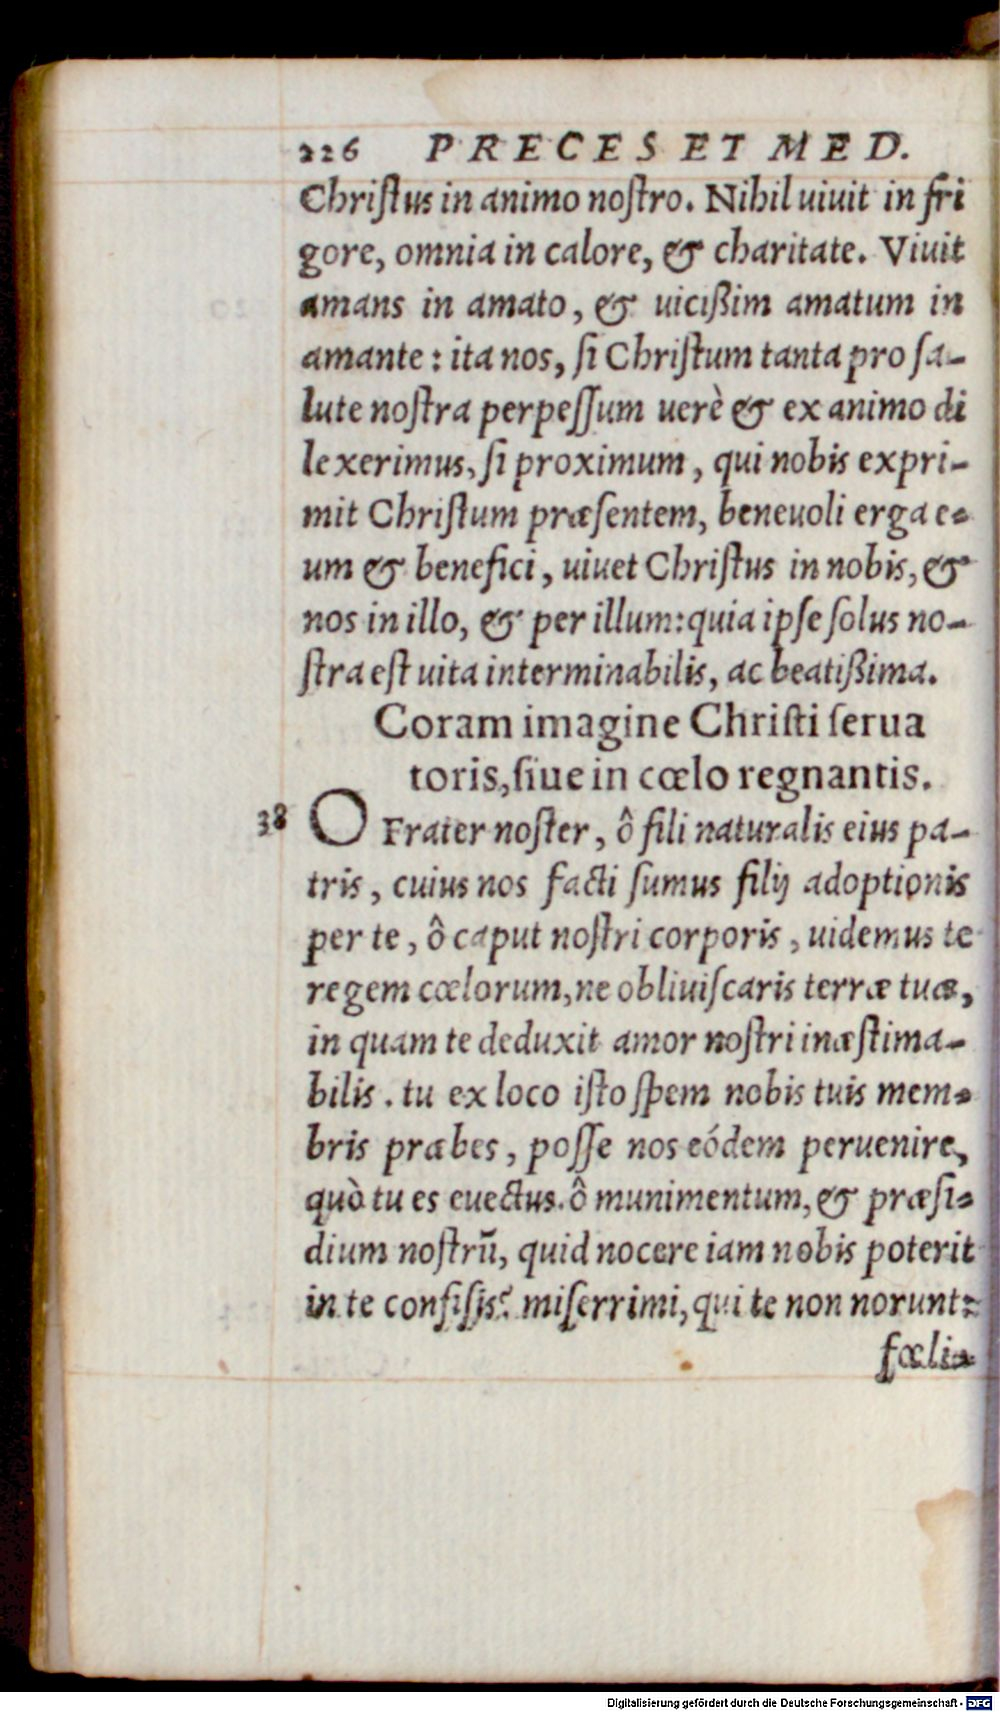 226 PRECES ET MED.
Chriſtus in animo noſtro. Nihil uiuit in fri
gore, omnia in calore, & charitate. Viuit
amans in amato, & uicißim amatum in
amante: ita nos, ſi Chriſtum tanta pro ſa-
lute noſtra perpeſſum uerè & ex animo di
lexerimus, ſi proximum, qui nobis expri-
mit Chriſtum præſentem, beneuoli erga e-
um & benefici, uiuet Chriſtus in nobis, &
nos in illo, & per illum: quia ipſe ſolus no-
ſtra eſt uita interminabilis, ac beatißima.
Coram imagine Chriſti ſerua
toris, ſiue in cœlo regnantis.
38 O Frater noſter, ô fili naturalis eius pa-
tris, cuius nos facti ſumus filij adoptionis
per te, ô caput noſtri corporis, uidemus te
regem cœlorum, ne obliuiſcaris terræ tuæ,
in quam te deduxit amor noſtri inæſtima-
bilis. tu ex loco iſto ſpem nobis tuis mem-
bris præbes, poſſe nos eódem peruenire,
quò tu es euectus. ô munimentum, & præſi-
dium noſtrũ, quid nocere iam nobis poterit
in te confiſis? miſerrimi, qui te non norunt:
fœli-
Digitalisierung gefördert durch die Deutsche Forschungsgemeinschaft - DFG